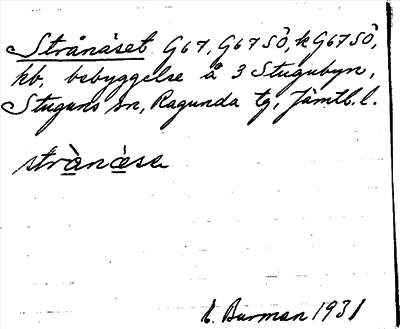 Strånäset G67, G67SÖ, k G67SÖ,
hb, bebyggelse å 3 Stugubyn,
Stuguns sn, Ragunda tg, Jämtl. l.
strànǽsє
L. Burman 1931